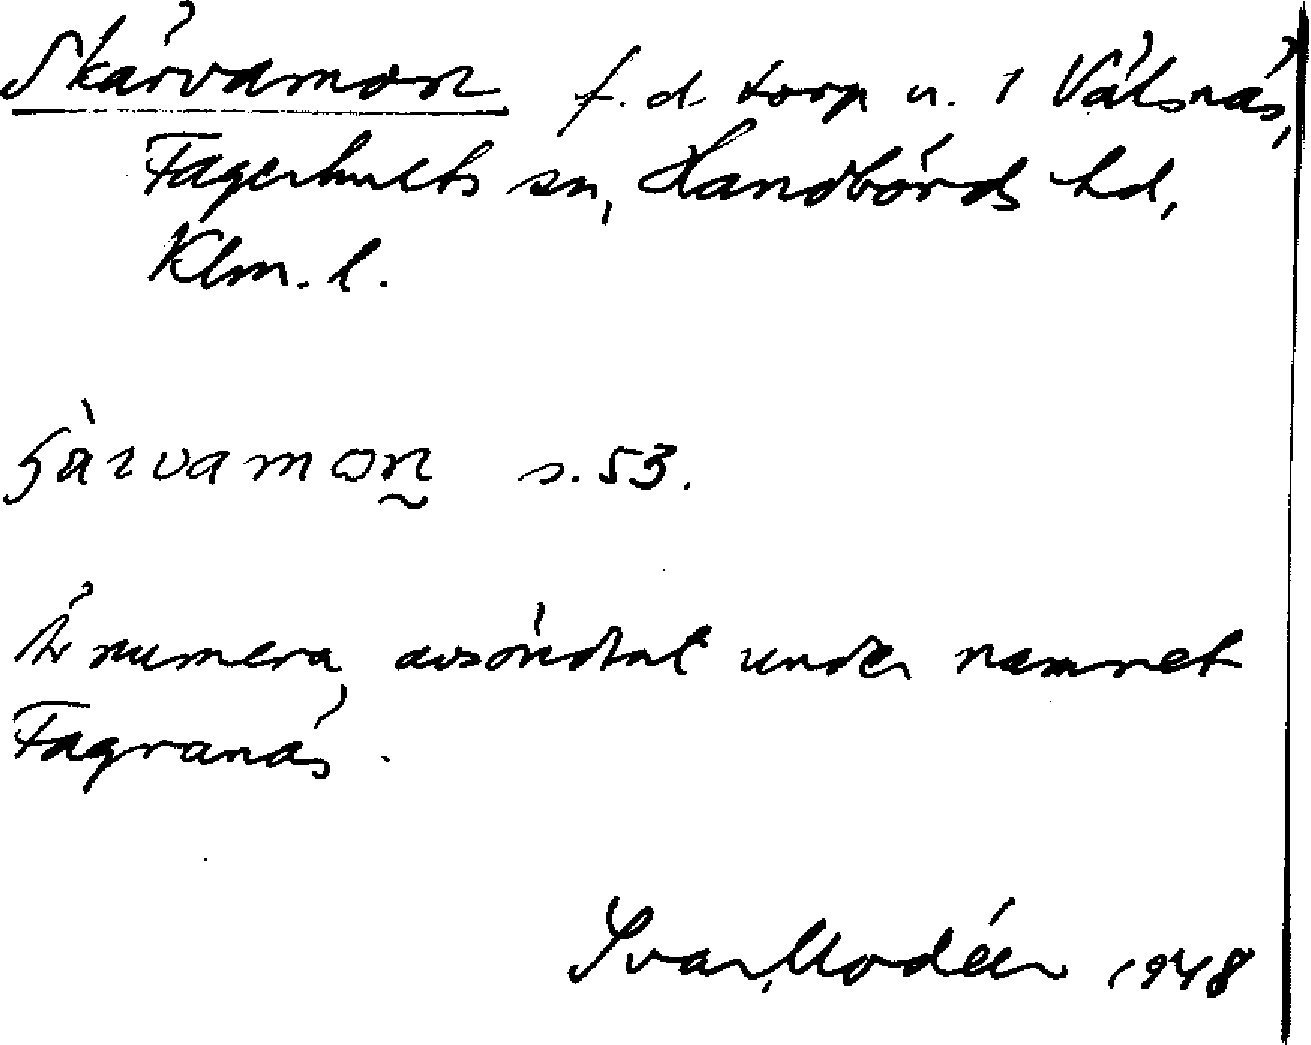 Skärvamon f.d. torp u. 1 Välsnäs,
Fagerhults sn, Handbörds hd,
Klm. l.
ʃä̀rvamon s. 53.
Är numera avsöndrat under namnet
Fagranäs.
Ivar Modéer 1948